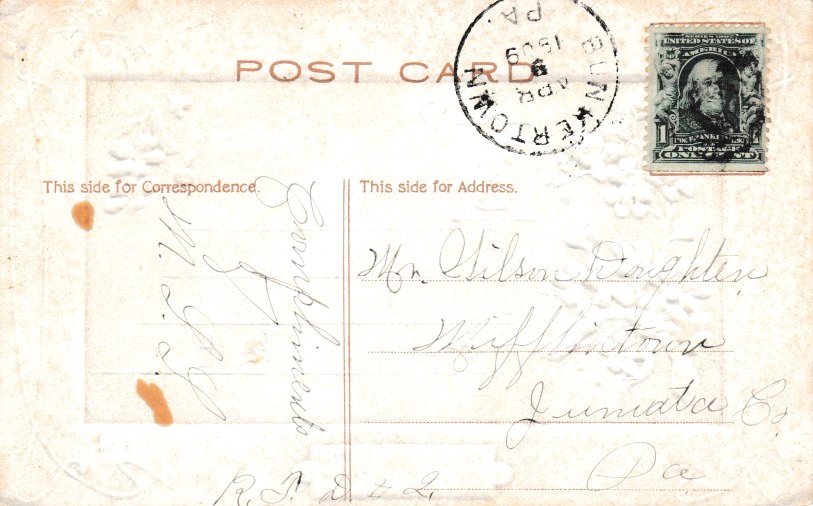 POST CARD
BUNKERTOWN
PA.
APR
9
1909
SERIES 1902
UNITED STATES OF
AMERICA
1
POSTAGE
ONE CENT
This side for Correspondence.
This side for Address.
Compliments
of
Mr. Gilson Doughten
Mifflintown
Juniata Co
Pa
R. F. D # 2.